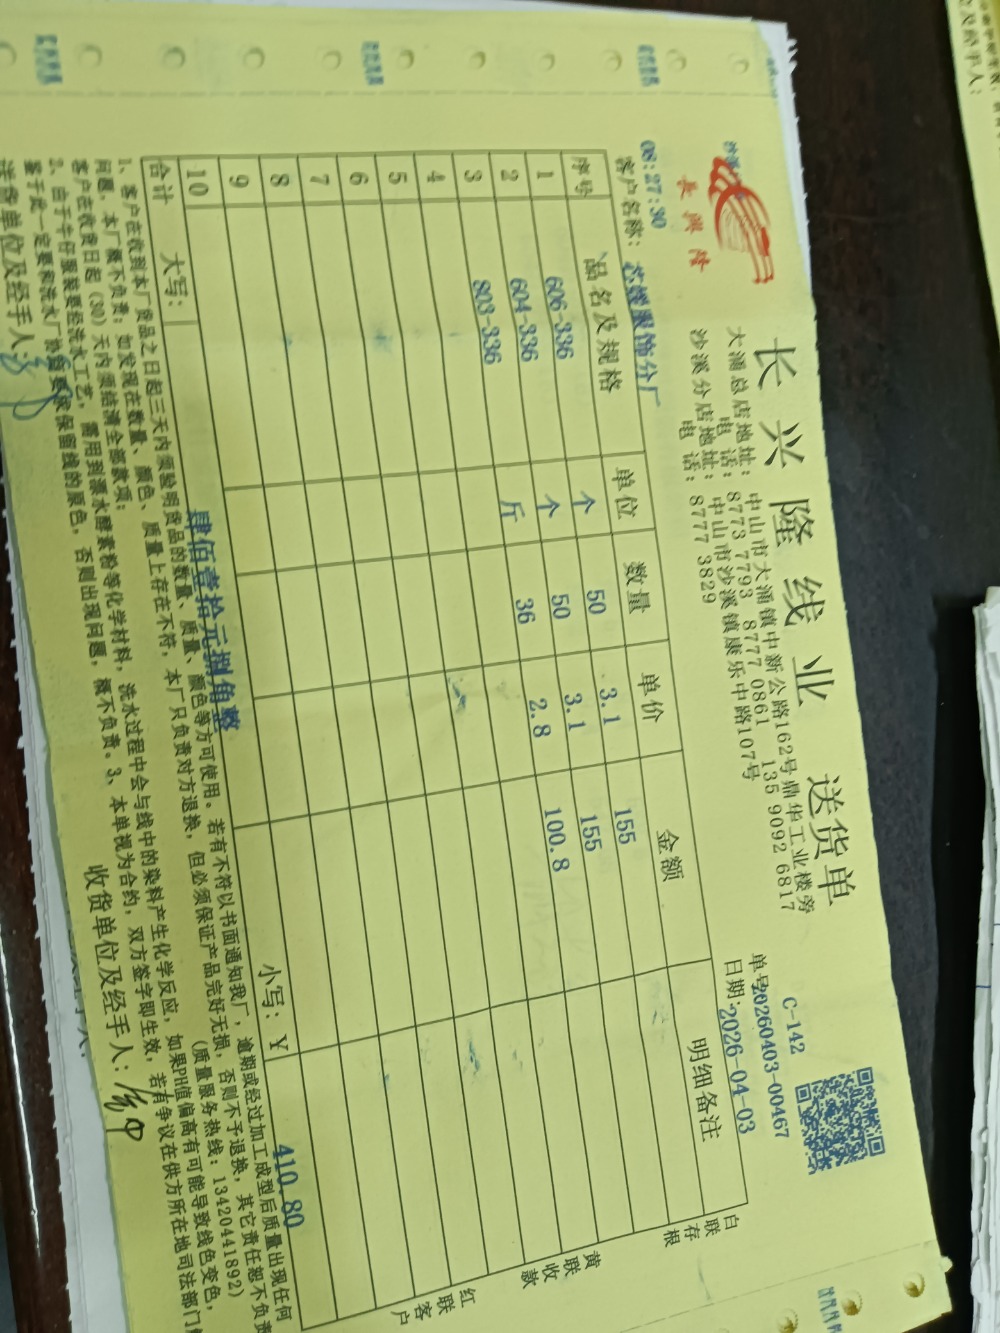 長興隆
长兴隆线业 送货单
大涌总店地址: 中山市大涌镇中新公路162号鼎华工业楼旁
电 话: 8773 7793 8777 0861 135 9092 6817
沙溪分店地址: 中山市沙溪镇康乐中路107号
电 话: 8777 3829
C-142
单号20260403-00467
日期:2026-04-03
08:27:30
客户名称: 芯煌服饰分厂
序号 品名及规格 单位 数量 单价 金额 明细备注
1 606-336 个 50 3.1 155
2 604-336 个 50 3.1 155
3 803-336 斤 36 2.8 100.8
4
5
6
7
8
9
10
合计 大写: 肆佰壹拾元捌角整 小写: Y 410.80
白联存根
黄联收款
红联客户
1、客户在收到本厂货品之日起三天内须验明货品的数量、质量、颜色等方可使用。若有不符以书面通知我厂,逾期或经过加工成型后质量出现任何
问题,本厂概不负责;如发现在数量、颜色、质量上存在不符,本厂只负责对方退换,但必须保证产品完好无损,否则不予退换,其它责任恕不负责
客户在收货日起(30)天内须结清全部款项; (质量服务热线:13420441892)
2、由于牛仔服装要经洗水工艺,需用到漂水酵素粉等化学材料,洗水过程中会与线中的染料产生化学反应,如果PH值偏高有可能导致线色变色,
鉴于此一定要和洗水厂协商要求保留线的原色,否则出现问题,概不负责。3、本单视为合约,双方签字即生效,若有争议在供方所在地司法部门
送货单位及经手人: 收货单位及经手人:
及经手人: